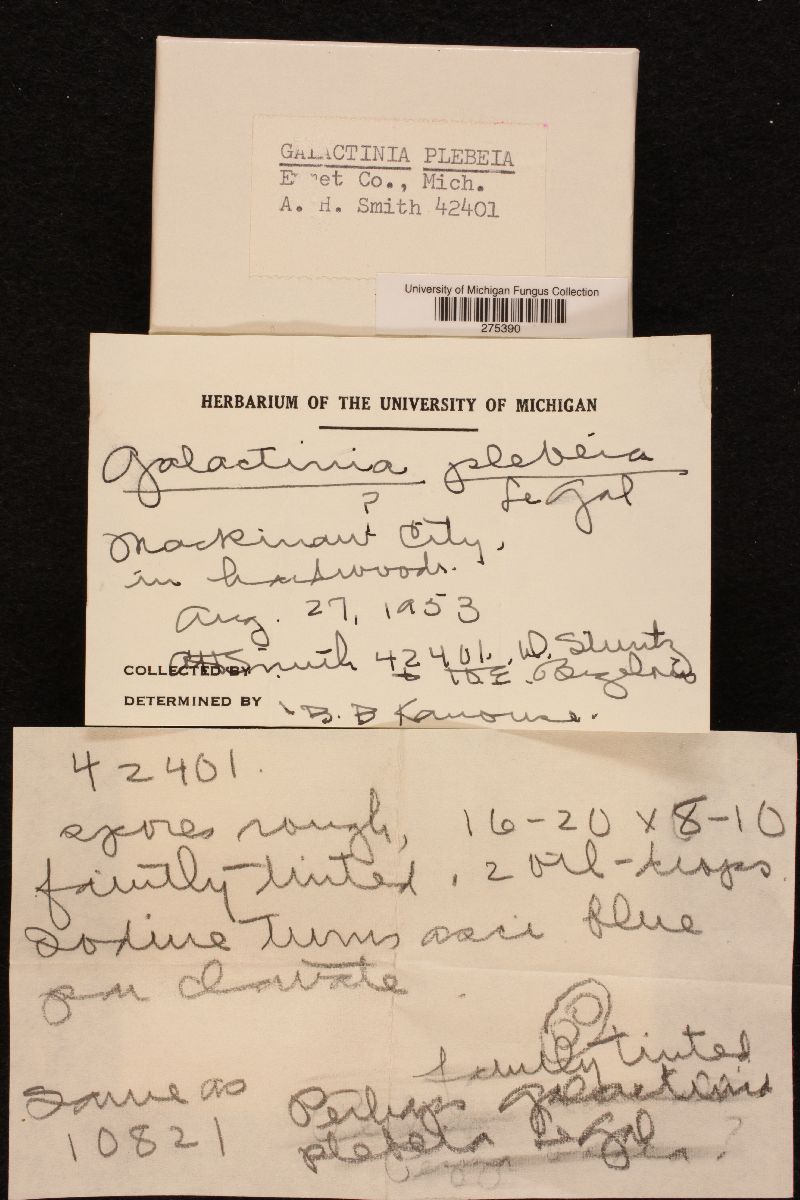 GALACTINIA PLEBEIA
Emmet Co., Mich.
A. H. Smith 42401
University of Michigan Fungus Collection
275390
HERBARIUM OF THE UNIVERSITY OF MICHIGAN
Galactinia plebeia
Le Gal
?
Mackinaw City,
in hardwoods.
Aug. 27, 1953
COLLECTED BY AHSmith 42401. D. Stuntz
+ D.E.
DETERMINED BY B. B Kanouse.
42401.
spores rough, 16-20 x 8-10
faintly-tinted, 2 oil-drops.
Iodine turns asci blue
par clavate.
faintly tinted
Same as
10821
Perhaps Galactinia
plebeia Le Gal
?